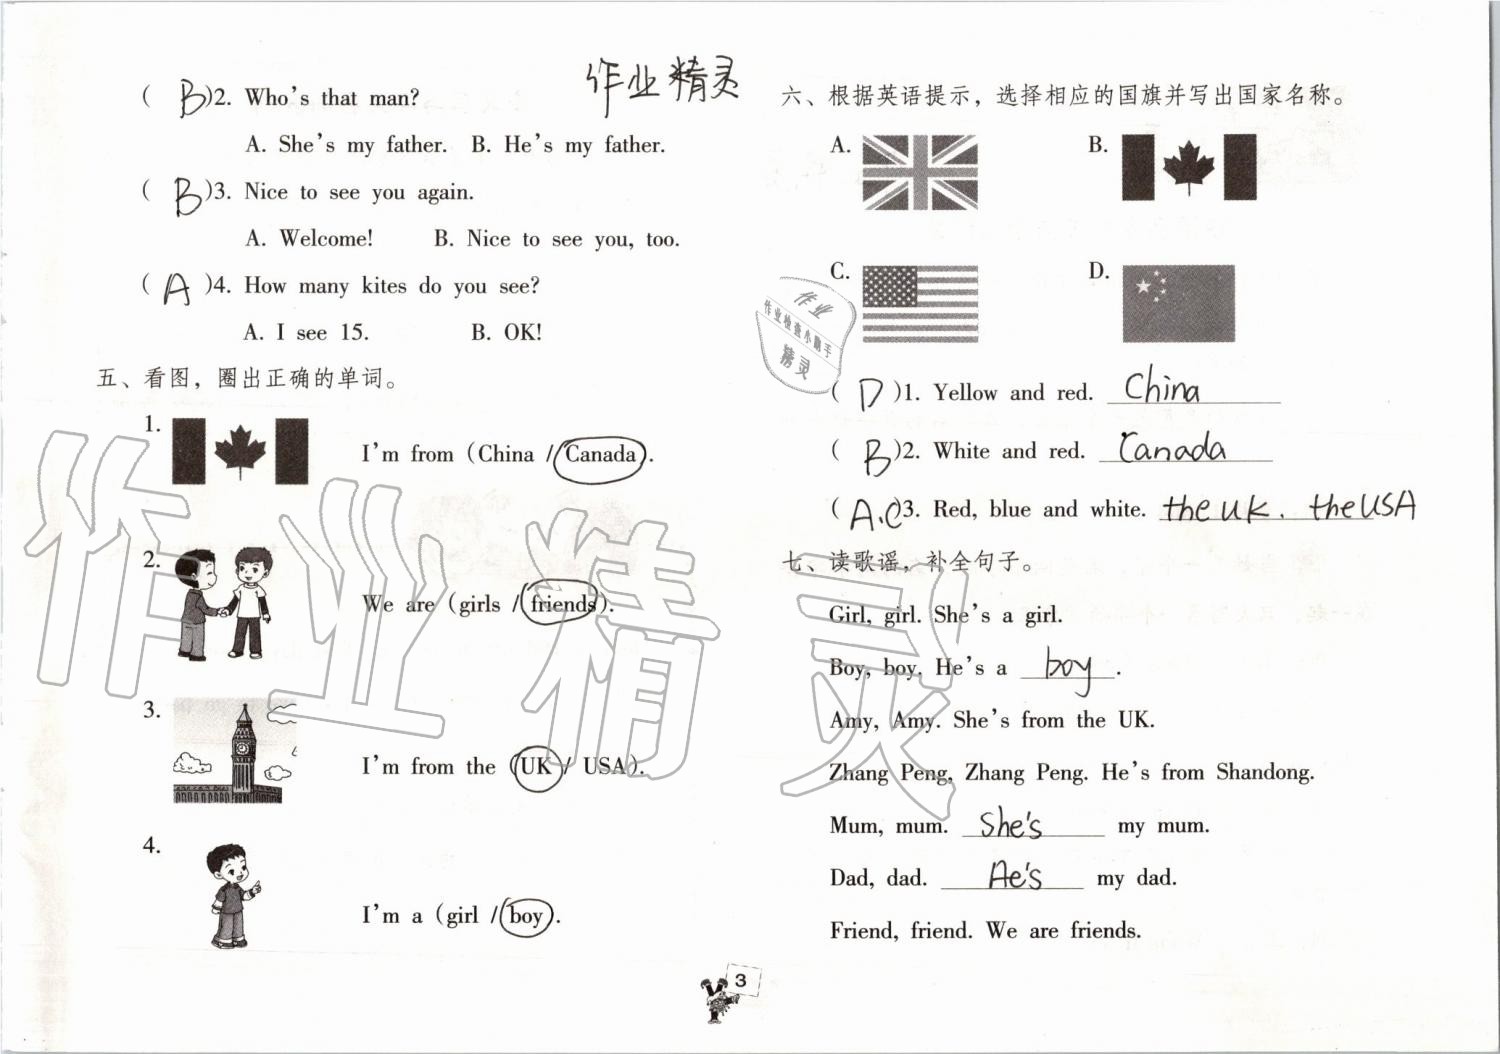 作业精灵
( B )2. Who's that man?
A. She's my father. B. He's my father.
( B )3. Nice to see you again.
A. Welcome! B. Nice to see you, too.
( A )4. How many kites do you see?
A. I see 15. B. OK!
五、看图，圈出正确的单词。
1. I'm from (China / Canada).
2. We are (girls / friends).
3. I'm from the (UK / USA).
4. I'm a (girl / boy).
六、根据英语提示，选择相应的国旗并写出国家名称。
A. B.
C. D.
( D )1. Yellow and red. China
( B )2. White and red. Canada
( A.C )3. Red, blue and white. the UK. the USA
七、读歌谣，补全句子。
Girl, girl. She's a girl.
Boy, boy. He's a boy.
Amy, Amy. She's from the UK.
Zhang Peng, Zhang Peng. He's from Shandong.
Mum, mum. She's my mum.
Dad, dad. He's my dad.
Friend, friend. We are friends.
3
作业
作业检查小助手
精灵
作业精灵